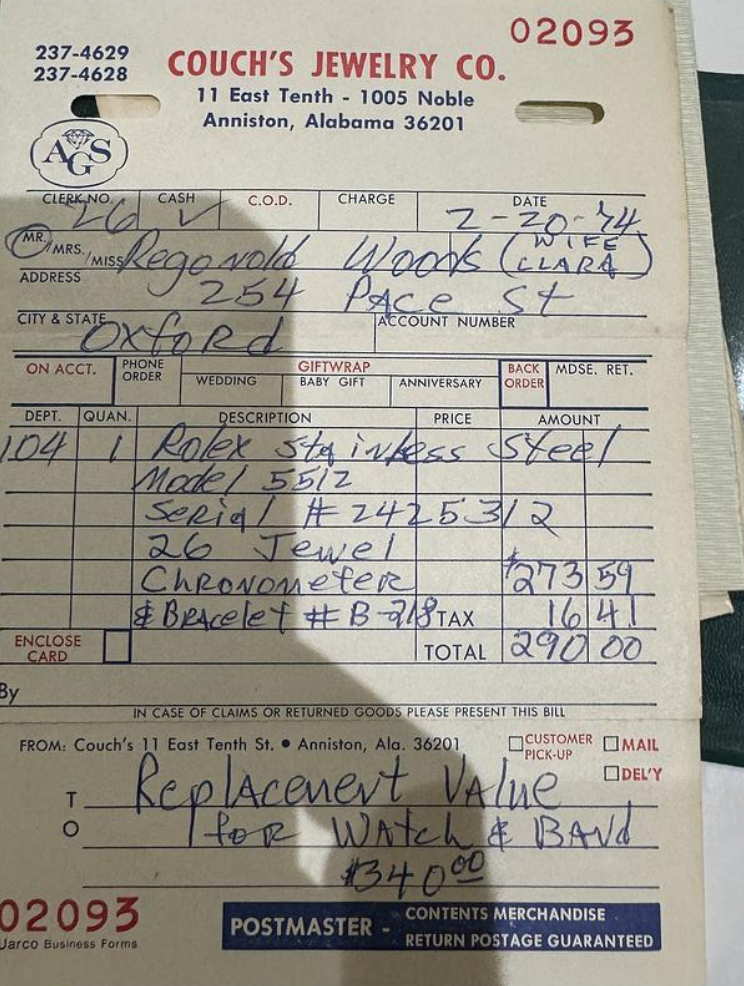 02093
237-4629
237-4628
COUCH'S JEWELRY CO.
11 East Tenth - 1005 Noble
Anniston, Alabama 36201
AGS
CLERK NO. CASH C.O.D. CHARGE DATE
26 ✓ 2-20-74
MR./MRS./MISS Regonold Woods (WIFE CLARA)
ADDRESS 254 Pace St
CITY & STATE Oxford ACCOUNT NUMBER
ON ACCT. PHONE ORDER GIFTWRAP BACK ORDER MDSE. RET.
WEDDING BABY GIFT ANNIVERSARY
DEPT. QUAN. DESCRIPTION PRICE AMOUNT
104 1 Rolex Stainless Steel
Model 5512
Serial # 2425312
26 Jewel
Chronometer $273 59
& Bracelet # B-218 TAX 16 41
ENCLOSE CARD TOTAL 290 00
By
IN CASE OF CLAIMS OR RETURNED GOODS PLEASE PRESENT THIS BILL
FROM: Couch's 11 East Tenth St. • Anniston, Ala. 36201 CUSTOMER PICK-UP MAIL
DEL'Y
TO Replacement Value
for Watch & Band
$340.00
02093
Jarco Business Forms
POSTMASTER - CONTENTS MERCHANDISE
RETURN POSTAGE GUARANTEED